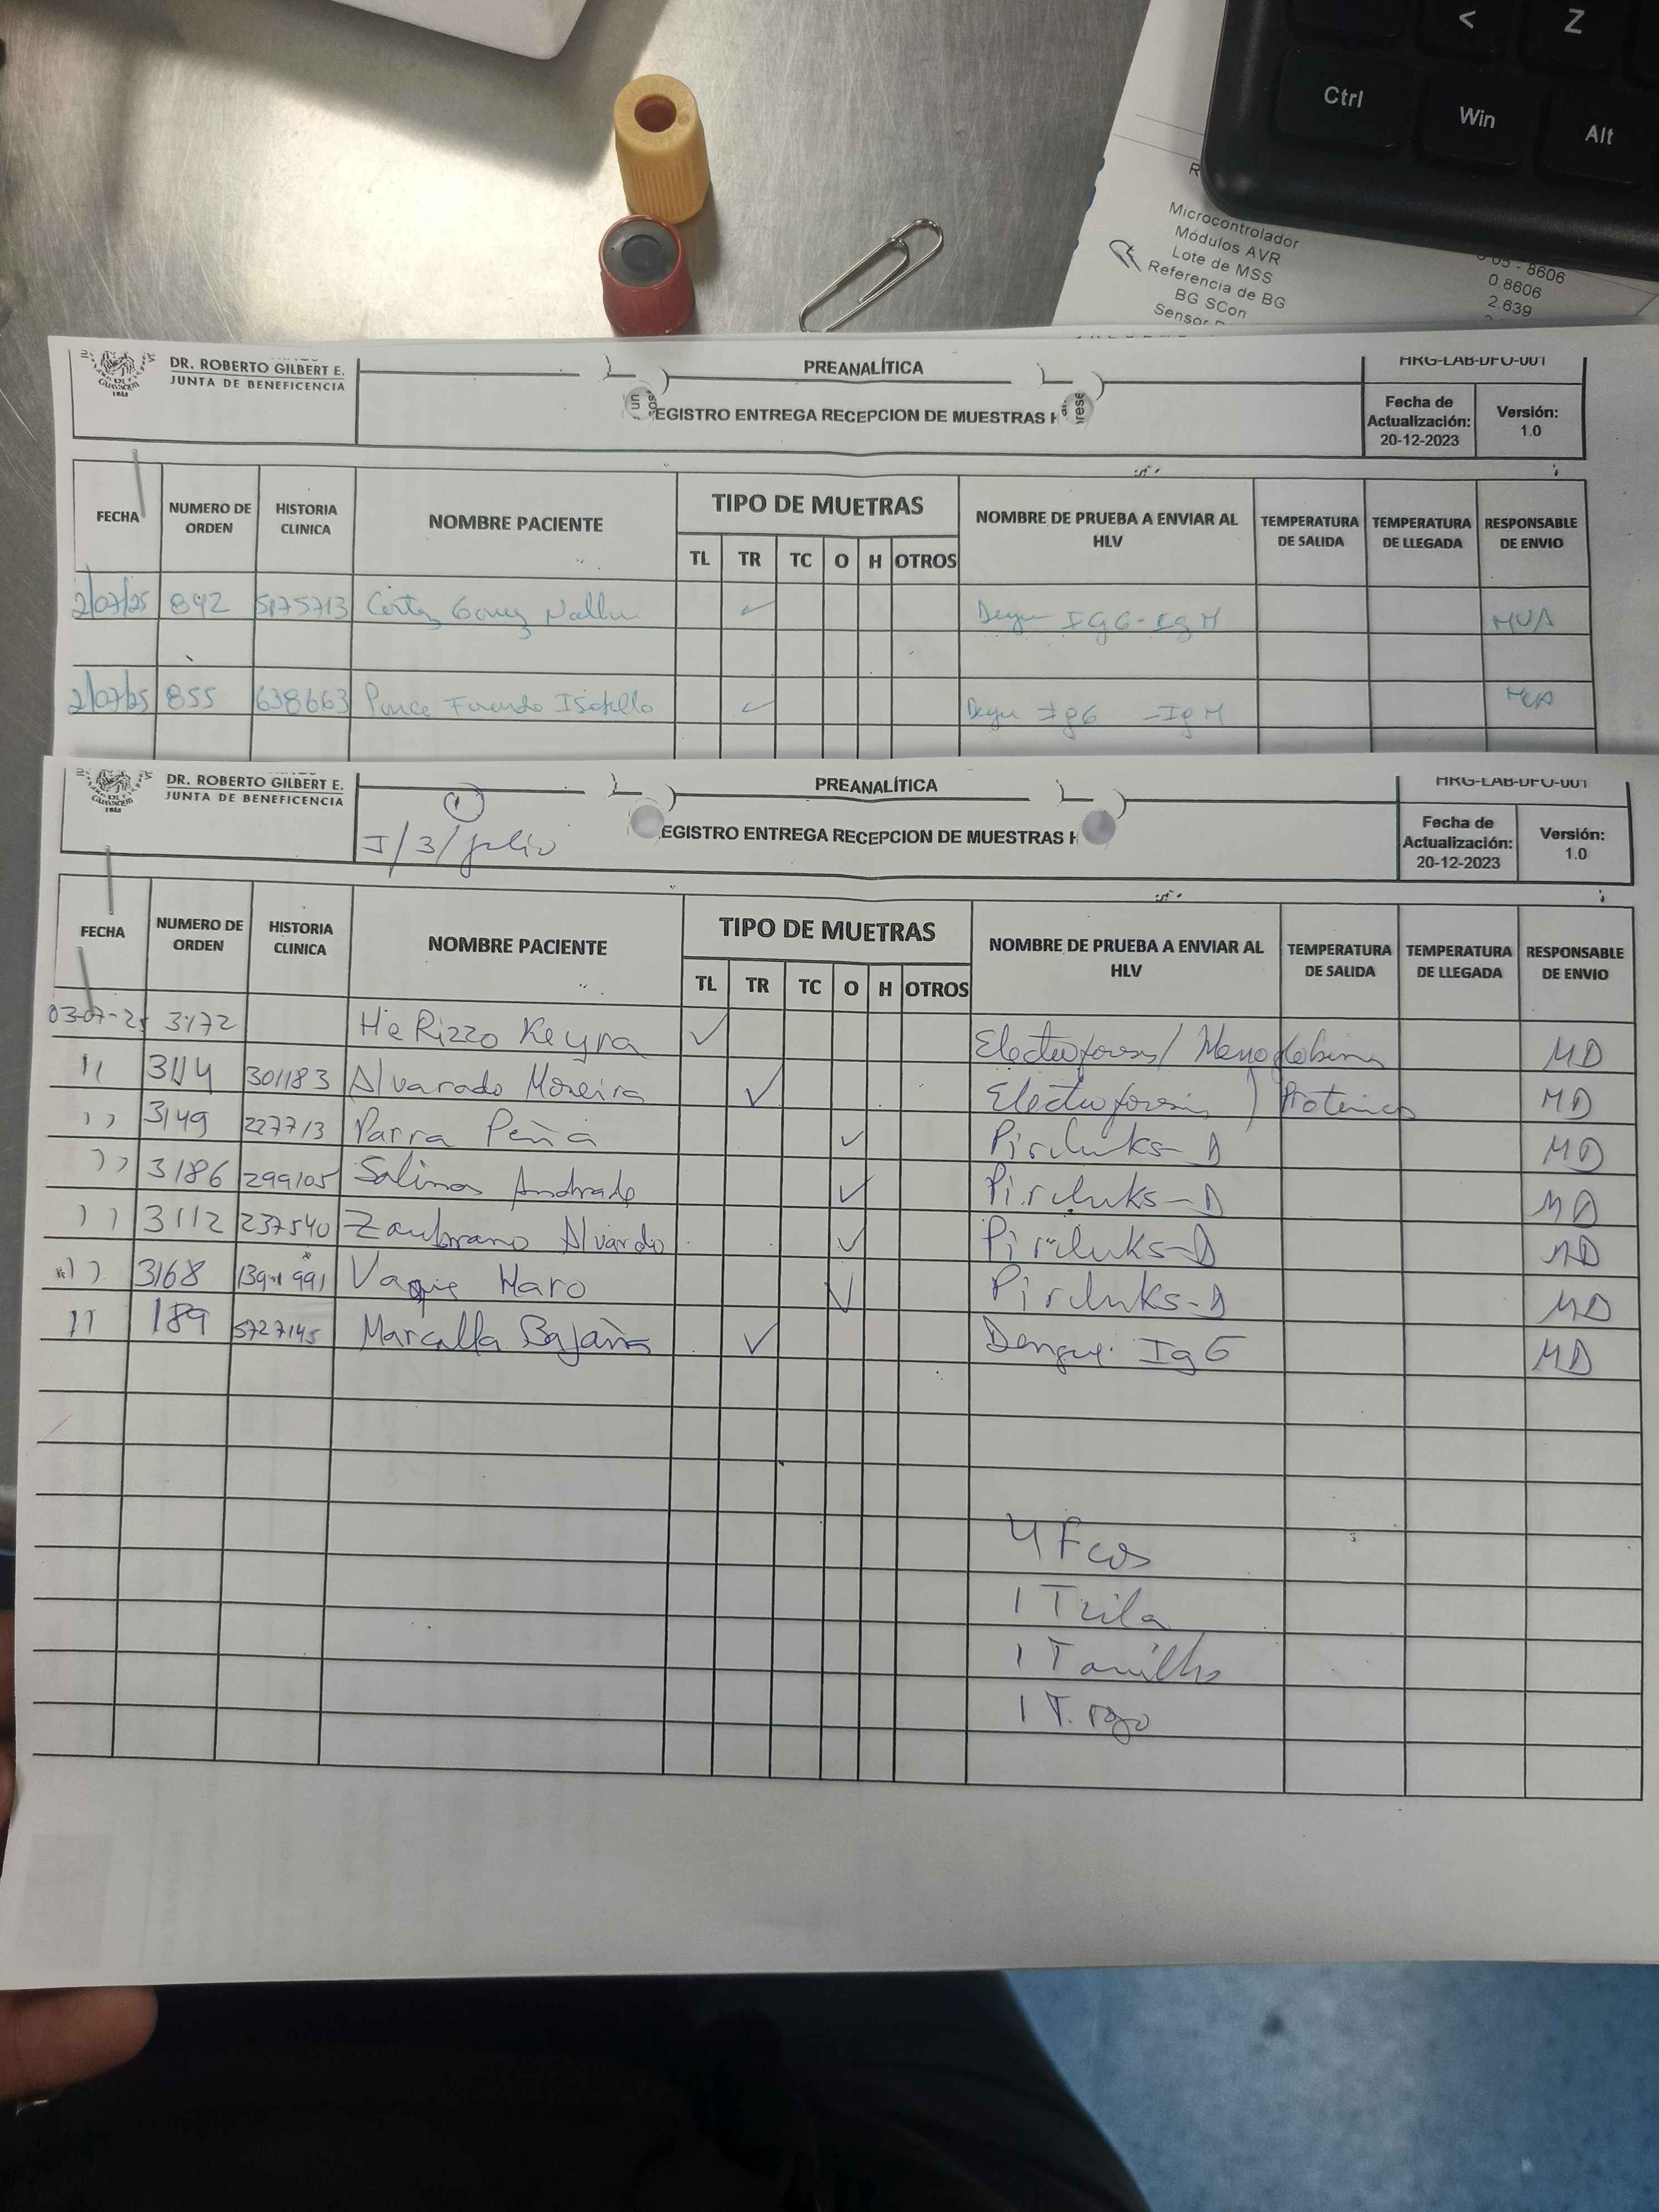 <
Z
Ctrl
Win
Alt
R
Microcontrolador
Módulos AVR
Lote de MSS
Referencia de BG
BG SCon
Sensor
- 8606
0.8606
2.639
DR. ROBERTO GILBERT E.
JUNTA DE BENEFICENCIA
PREANALÍTICA
EGISTRO ENTREGA RECEPCION DE MUESTRAS H
HRG-LAB-DFO-001
Fecha de Actualización: 20-12-2023
Versión: 1.0
FECHA NUMERO DE ORDEN HISTORIA CLINICA NOMBRE PACIENTE TIPO DE MUETRAS NOMBRE DE PRUEBA A ENVIAR AL HLV TEMPERATURA DE SALIDA TEMPERATURA DE LLEGADA RESPONSABLE DE ENVIO
TL TR TC O H OTROS
2/07/25 892 5175713 ✓ IgG-IgM
2/07/25 855 638663 Ponce ✓ IgG -IgM
DR. ROBERTO GILBERT E.
JUNTA DE BENEFICENCIA
1
I/3/julio
PREANALÍTICA
EGISTRO ENTREGA RECEPCION DE MUESTRAS H
HRG-LAB-DFO-001
Fecha de Actualización: 20-12-2023
Versión: 1.0
FECHA NUMERO DE ORDEN HISTORIA CLINICA NOMBRE PACIENTE TIPO DE MUETRAS NOMBRE DE PRUEBA A ENVIAR AL HLV TEMPERATURA DE SALIDA TEMPERATURA DE LLEGADA RESPONSABLE DE ENVIO
TL TR TC O H OTROS
03-07-25 3172 Hie Rizzo Keyra ✓ MD
11 3114 301183 Alvarado Moreira ✓ MD
11 3149 227713 Parra Peña ✓ MD
11 3186 299105 Salinas Andrade ✓ MD
11 3112 237540 Zambrano Alvarado ✓ MD
11 3168 Vaque Haro ✓ MD
11 189 5727145 Marcalla Bajaña ✓ Dengue IgG MD
4 Fcos
1 T lila
1 T amillo
1 T. rojo